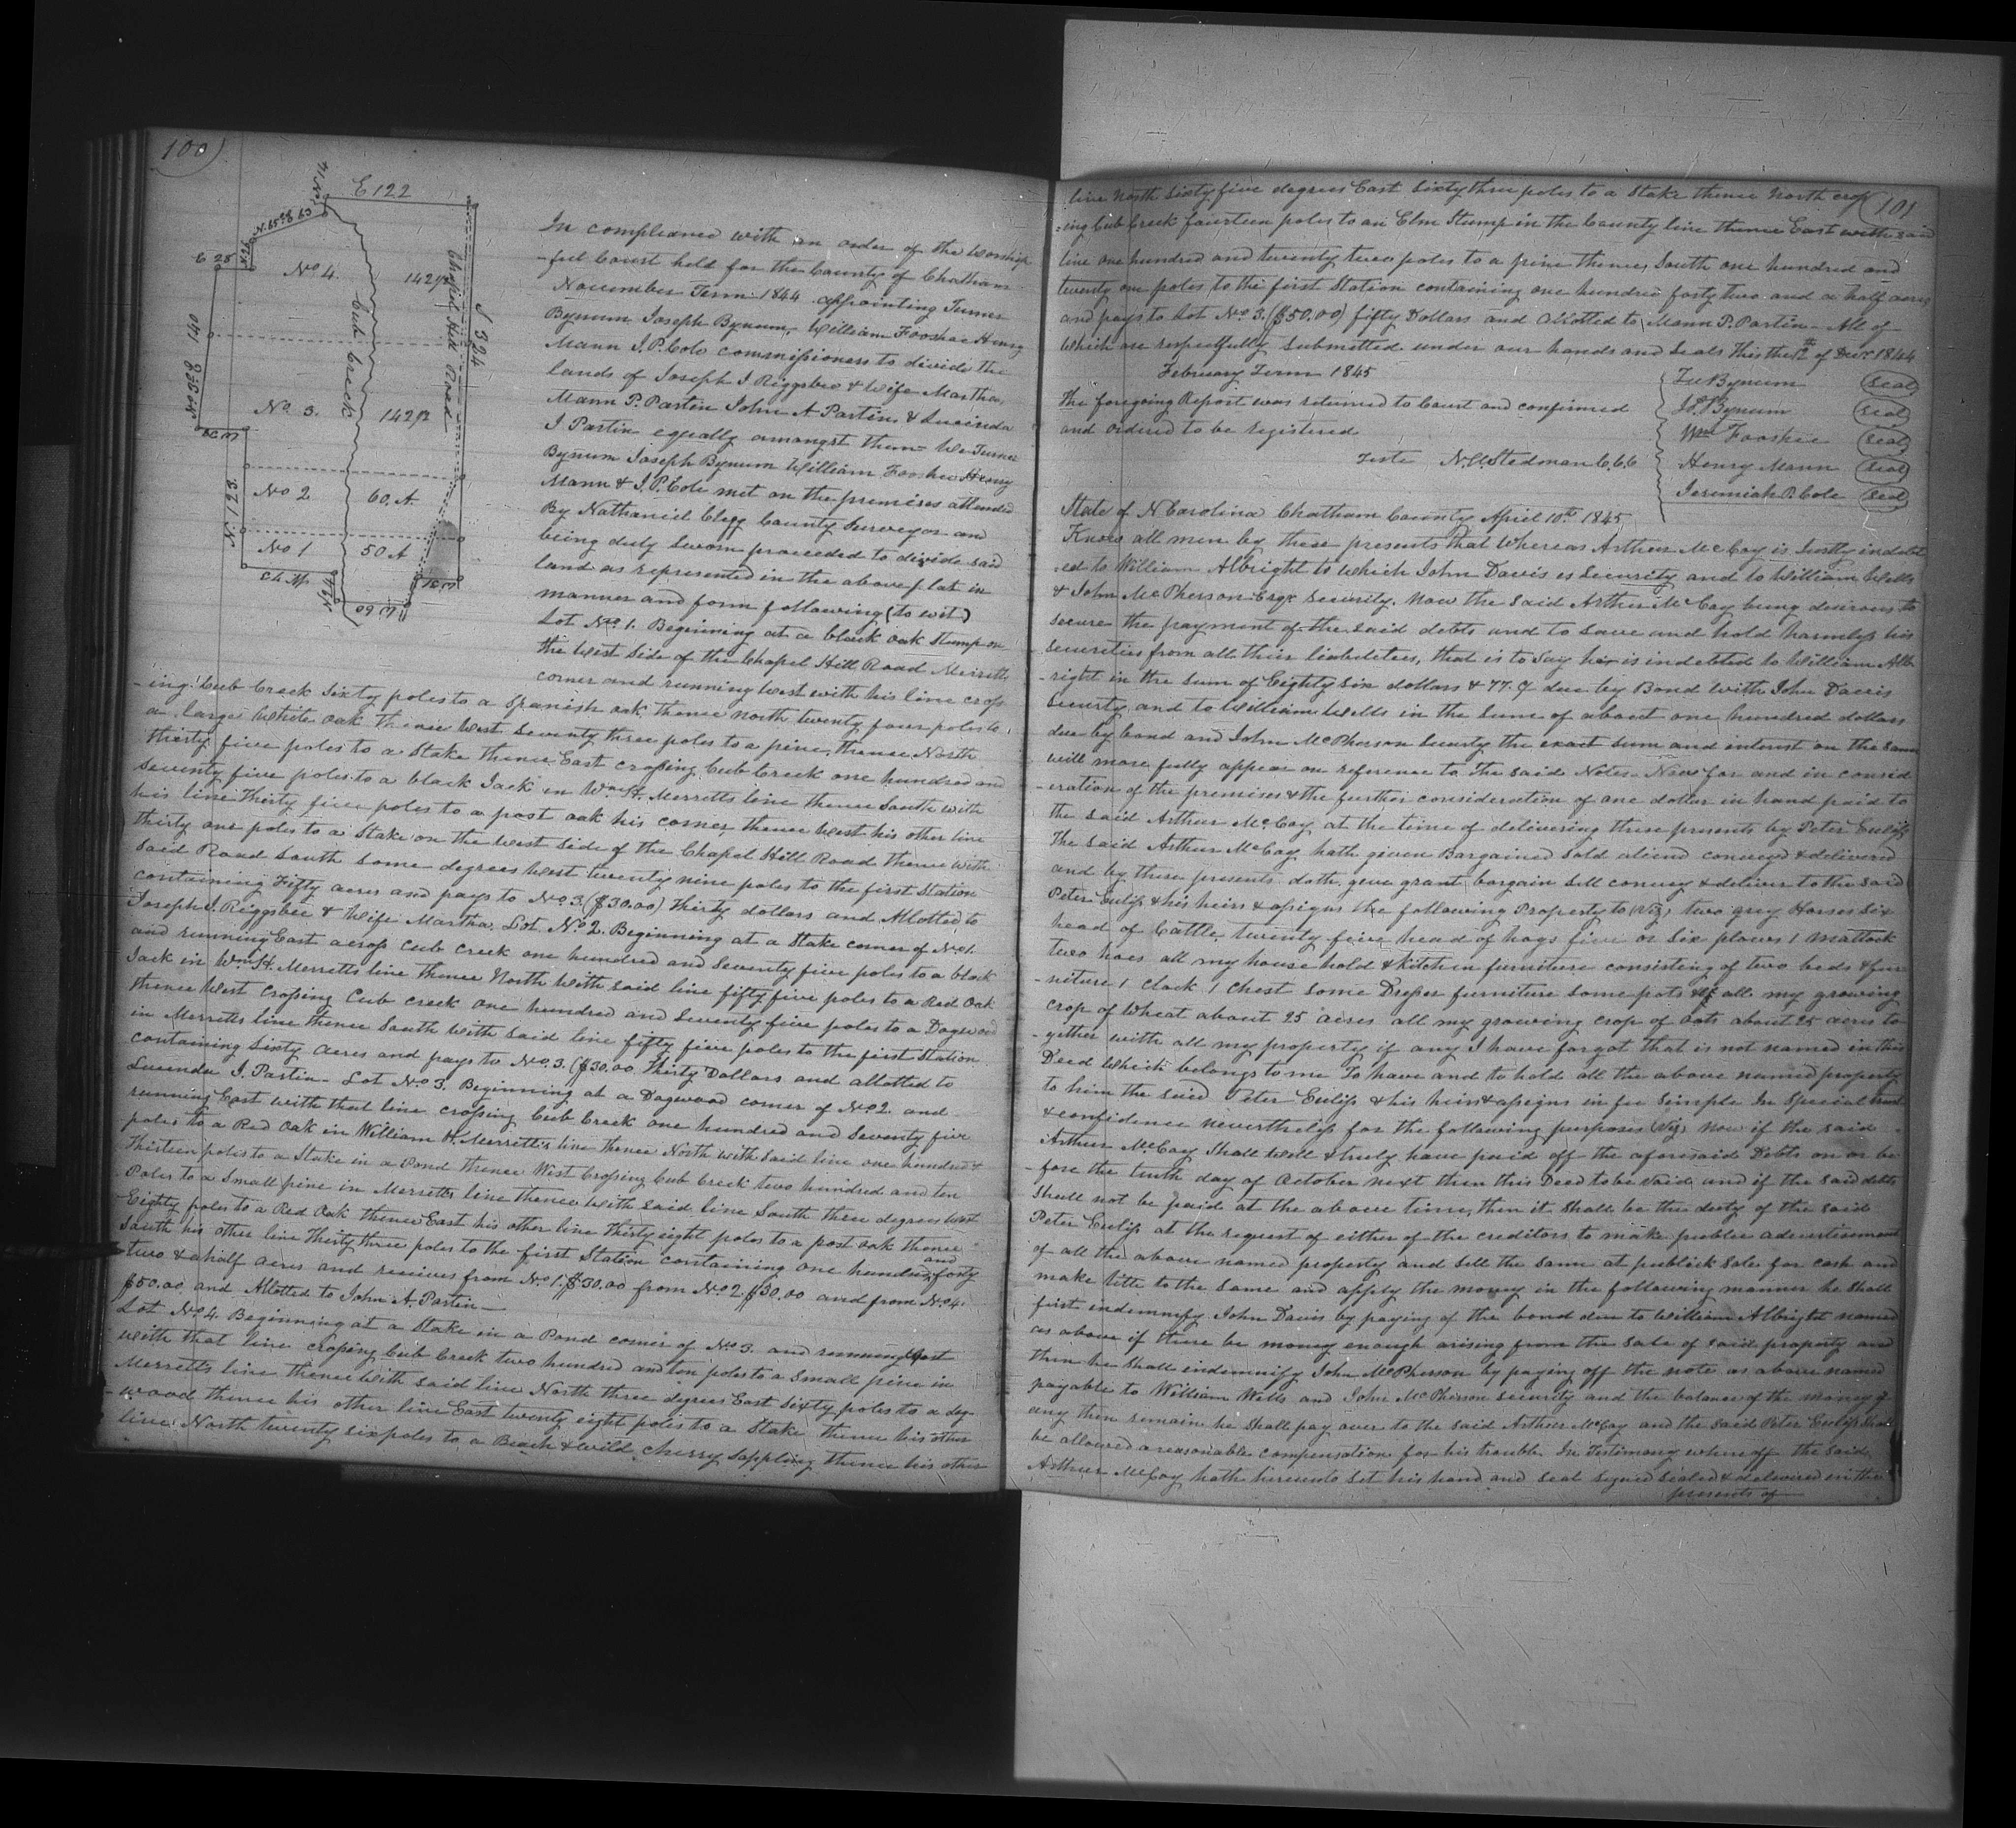 100)
N 14
E 122
N. 65 E 63
N 26
E 28
No 4.
142 1/2
Chapel Hill Road
S 324
Cub Creek
N 03 E 140
No 3.
142 1/2
W 38
N. 123
No 2
60. A
No 1
50 A
W 73
N 24
W 60
W 31
In compliance with an order of the worship
-ful Court held for the County of Chatham
November Term 1844 appointing Turner
Bynum Joseph Bynum, William Fooshee Henry
Mann J. P. Cole commissioners to divide the
lands of Joseph J Riggsbee & wife Martha,
Mann P. Partin John A Partin & Lucinda
J Partin equally amongst them - We Turner
Bynum Joseph Bynum William Fooshee Henry
Mann & J. P. Cole met on the premises attended
By Nathaniel Clegg County Surveyor and
being duly sworn proceeded to divide said
land as represented in the above plat in
manner and form following (to wit)
Lot No 1. Beginning at a black oak stump on
the west side of the Chapel Hill Road Merritts
corner and running West with his line cross
-ing Cub Creek Sixty poles to a Spanish oak, thence north twenty four poles to
a large White oak thence West Seventy three poles to a pine, thence North
thirty five poles to a Stake thence East crossing Cub Creek one hundred and
seventy five poles to a black Jack in Wm H. Merritts line thence South with
his line Thirty five poles to a post oak his corner thence West his other line
thirty one poles to a Stake on the West Side of the Chapel Hill Road thence with
said Road South some degrees West twenty nine poles to the first Station
containing Fifty acres and pays to No 3. ($30.00) Thirty dollars and Allotted to
Joseph J. Riggsbee & Wife Martha. Lot No 2. Beginning at a Stake corner of No 1.
and running East across Cub Creek one hundred and Seventy five poles to a black
Jack in Wm H. Merritts line thence North with said line fifty five poles to a Red Oak
thence West Crossing Cub creek one hundred and Seventy five poles to a Dogwood
in Merritts line thence South with said line fifty five poles to the first Station
containing Sixty acres and pays to No 3. ($30.00 Thirty Dollars and allotted to
Lucinda J. Partin - Lot No 3. Beginning at a Dogwood corner of No 2. and
running East with that line crossing Cub Creek one hundred and Seventy five
poles to a Red Oak in William H. Merritt's line thence North with said line one hundred &
Thirteen poles to a Stake in a Pond thence West Crossing Cub Creek two hundred and ten
Poles to a Small pine in Merritts line thence with said line South three degrees West
Eighty poles to a Red Oak thence East his other line Thirty eight poles to a post oak thence
South his other line Thirty three poles to the first Station containing one hundred and forty
two & a half acres and receives from No 1. $30.00 from No 2 $30.00 and from No 4.
$50.00 and Allotted to John A. Partin -
Lot No 4. Beginning at a Stake in a Pond corner of No 3. and running West
with that line crossing Cub Creek two hundred and ten poles to a Small pine in
Merretts line thence with said line North three degrees East Sixty poles to a dog-
-wood thence his other line East twenty eight poles to a Stake thence his other
line North twenty six poles to a Beach & wild Cherry Sappling thence his other
101
line North Sixty five degrees East Sixty three poles to a Stake thence North cross
-ing Cub Creek fourteen poles to an Elm Stump in the County line thence East with said
line one hundred and twenty two poles to a pine thence South one hundred and
twenty one poles to the first Station containing one hundred forty two and a half acres
and pays to Lot No 3. ($50.00) fifty Dollars and Allotted to Mann P. Partin - All of
Which are respectfully submitted under our hands and Seals this the 12th of Decr 1844
February Term 1845
The foregoing Report was returned to Court and confirmed
and ordered to be registered
Teste N. A. Stedman C.C.C
Tu Bynum seal
Jos. Bynum seal
Wm Fooshee seal
Henry Mann seal
Jeremiah P. Cole seal
State of N. Carolina Chatham County April 10th 1845
Know all men by these presents that Whereas Arthur McCoy is Justly indebt
-ed to William Albright to which John Davis is Security and to William Wells
& John McPherson Esqr Security. Now the said Arthur McCoy being desirous to
secure the payment of the said debts and to save and hold harmless his
securities from all their liabilities, that is to say he is indebted to William Alb
-right in the sum of Eighty six dollars & 77. c due by Bond with John Davis
Security and to William Wells in the sum of about one hundred dollars
due by bond and John McPherson Security the exact sum and interest on the same
will more fully appear on reference to the said Notes. Now for and in consid
-eration of the premises & the further consideration of one dollar in hand paid to
the said Arthur McCoy at the time of delivering these presents by Peter Euliss
The said Arthur McCoy hath given Bargained sold aliend conveyed & delivered
and by these presents doth give grant bargain Sell convey & deliver to the said
Peter Euliss & his heirs & assigns the following Property to (Viz) two grey Horses Six
head of Cattle, twenty five head of hogs five or Six plows 1 Mattock
two hoes all my house hold & kitchen furniture consisting of two beds & fur
-niture 1 Clock 1 Chest some Dresser furniture some pots & all my growing
crop of Wheat about 25 acres all my growing crop of oats about 25 acres to
-gether with all my property if any I have forgot that is not named in this
Deed which belongs to me To have and to hold all the above named property
to him the said Peter Euliss & his heirs & assigns in fee simple In Special trust
& confidence nevertheless for the following purposes (Viz) Now if the said
Arthur McCoy Shall well & truly have paid off the aforesaid Debts on or be
-fore the tenth day of October next then this Deed to be void and if the said debts
Shall not be paid at the above time, then it shall be the duty of the said
Peter Euliss at the request of either of the creditors to make public advertisement
of all the above named property and sell the same at publick Sale for cash and
make title to the same and apply the money in the following manner he shall
first indemnify John Davis by paying of the bond due to William Albright named
as above if there be money enough arising from the Sale of said property and
then he shall indemnify John McPherson by paying off the note as above named
payable to William Wells and John McPherson security and the balance of the money if
any then remain he shall pay over to the said Arthur McCoy and the said Peter Euliss shall
be allowed a reasonable compensation for his trouble In Testimony whereoff the said
Arthur McCoy hath hereunto set his hand and seal signed sealed & delivered in the
presents of